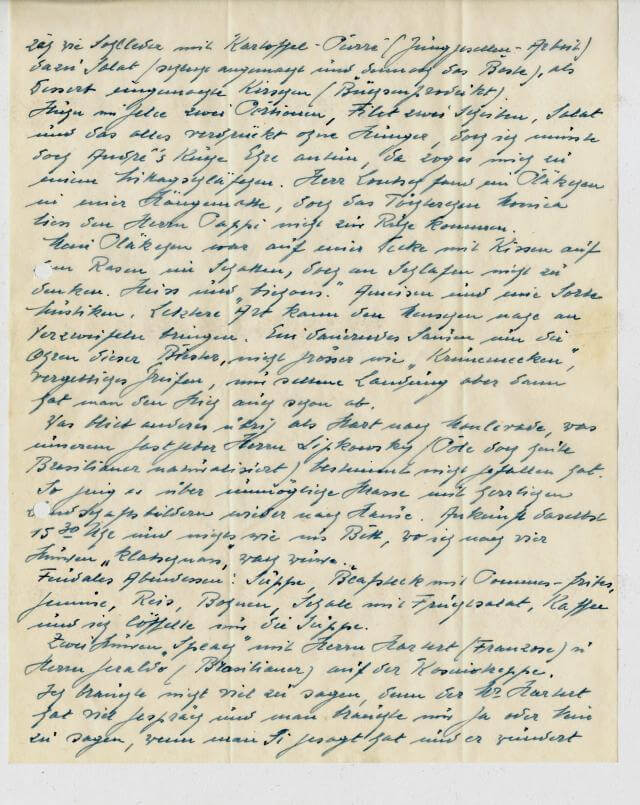 zäh wie Sohlleder mit Kartoffel-Pürré (Junggesellen-Arbeit)
dazu Salat (selbst angemacht und demnach das Beste), als
Dessert eingemachte Kirschen (Büchsenprodukt).
Huhn ni jelee zwei Portionen, Filet zwei Scheiben, Salat
und das alles verdrückt ohne Hunger, doch ich musste
doch André's Küche Ehre antun, da zog es mich zu
einem Mittagsschläfchen. Herr Loutsch fand ein Pläkchen
in einer Hängematte, doch das Töchterchen Monica
liess den Herrn Pappi nicht zur Ruhe kommen.
Mein Pläkchen war auf einer Decke mit Kissen auf
dem Rasen im Schatten, doch an Schlafen nicht zu
denken. Heiss und Ameisen und eine Sorte
Mustiken. Letztere Art kann den Menschen nahe an
Verzweifeln bringen. Ein dauerndes Sausen um die
Ohren dieser Biester, nicht grosser wie „Krünemecken",
vergebliches Greifen, nur seltene Landung aber dann
hat man den Stich auch schon ab.
Was blieb anderes übrig als Start nach Monlevade, was
unserem Gastgeber Herrn Lipkowsky (Pole doch heute
Brasilianer naturalisiert) bestimmt nicht gefallen hat.
So ging es über unmögliche Strasse mit herrlichen
Landschaftsbildern wieder nach Hause. Ankunft daselbst
15 30 Uhr und nichts wie ins Bett, wo ich nach vier
Stunden „klatschnass" wach wurde.
Feudales Abendessen: Suppe, Beafsteck mit Pommes-frites,
Gemüse, Reis, Bohnen, Schale mit Fruchtsalat, Kaffee
und ich löffelte nur die Suppe.
Zwei Stunden „Speach" mit Herrn Hartert (Franzose) u
Herrn Geraldo (Brasilianer) auf der Kasinotreppe.
Ich brauchte nicht viel zu sagen, denn der Mr Hartert
hat viel Gespräch und man brauchte nur Ja oder Nein
zu sagen, wenn man Si gesagt hat und er wundert